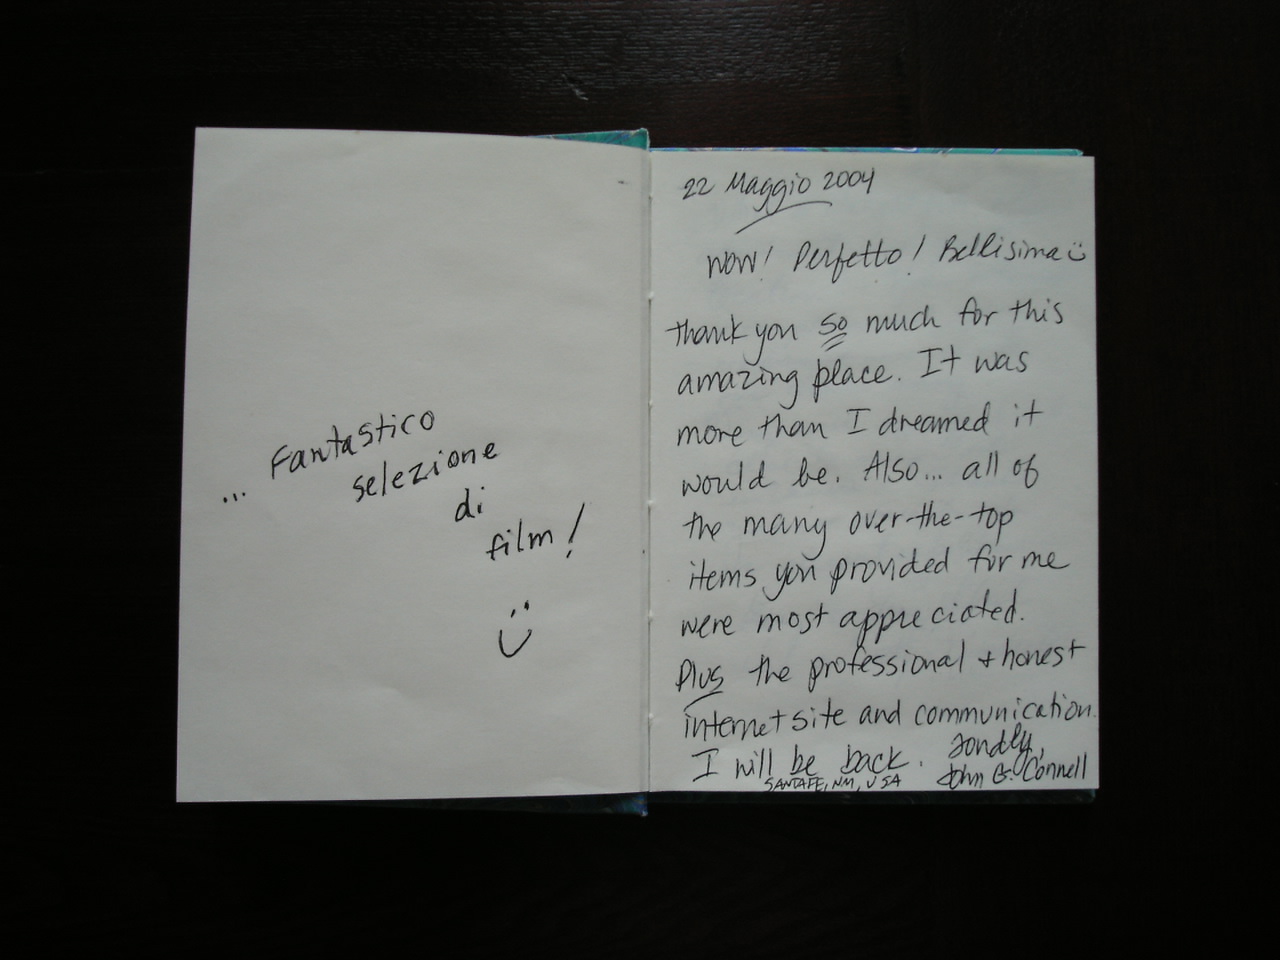 ... Fantastico
selezione
di
film!
22 Maggio 2004
WOW! Perfetto! Bellisima
thank you so much for this
amazing place. It was
more than I dreamed it
would be. Also... all of
the many over-the-top
items you provided for me
were most appreciated.
Plus the professional + honest
internet site and communication.
I will be back. Fondly,
SANTA FE, NM, USA John G. Connell